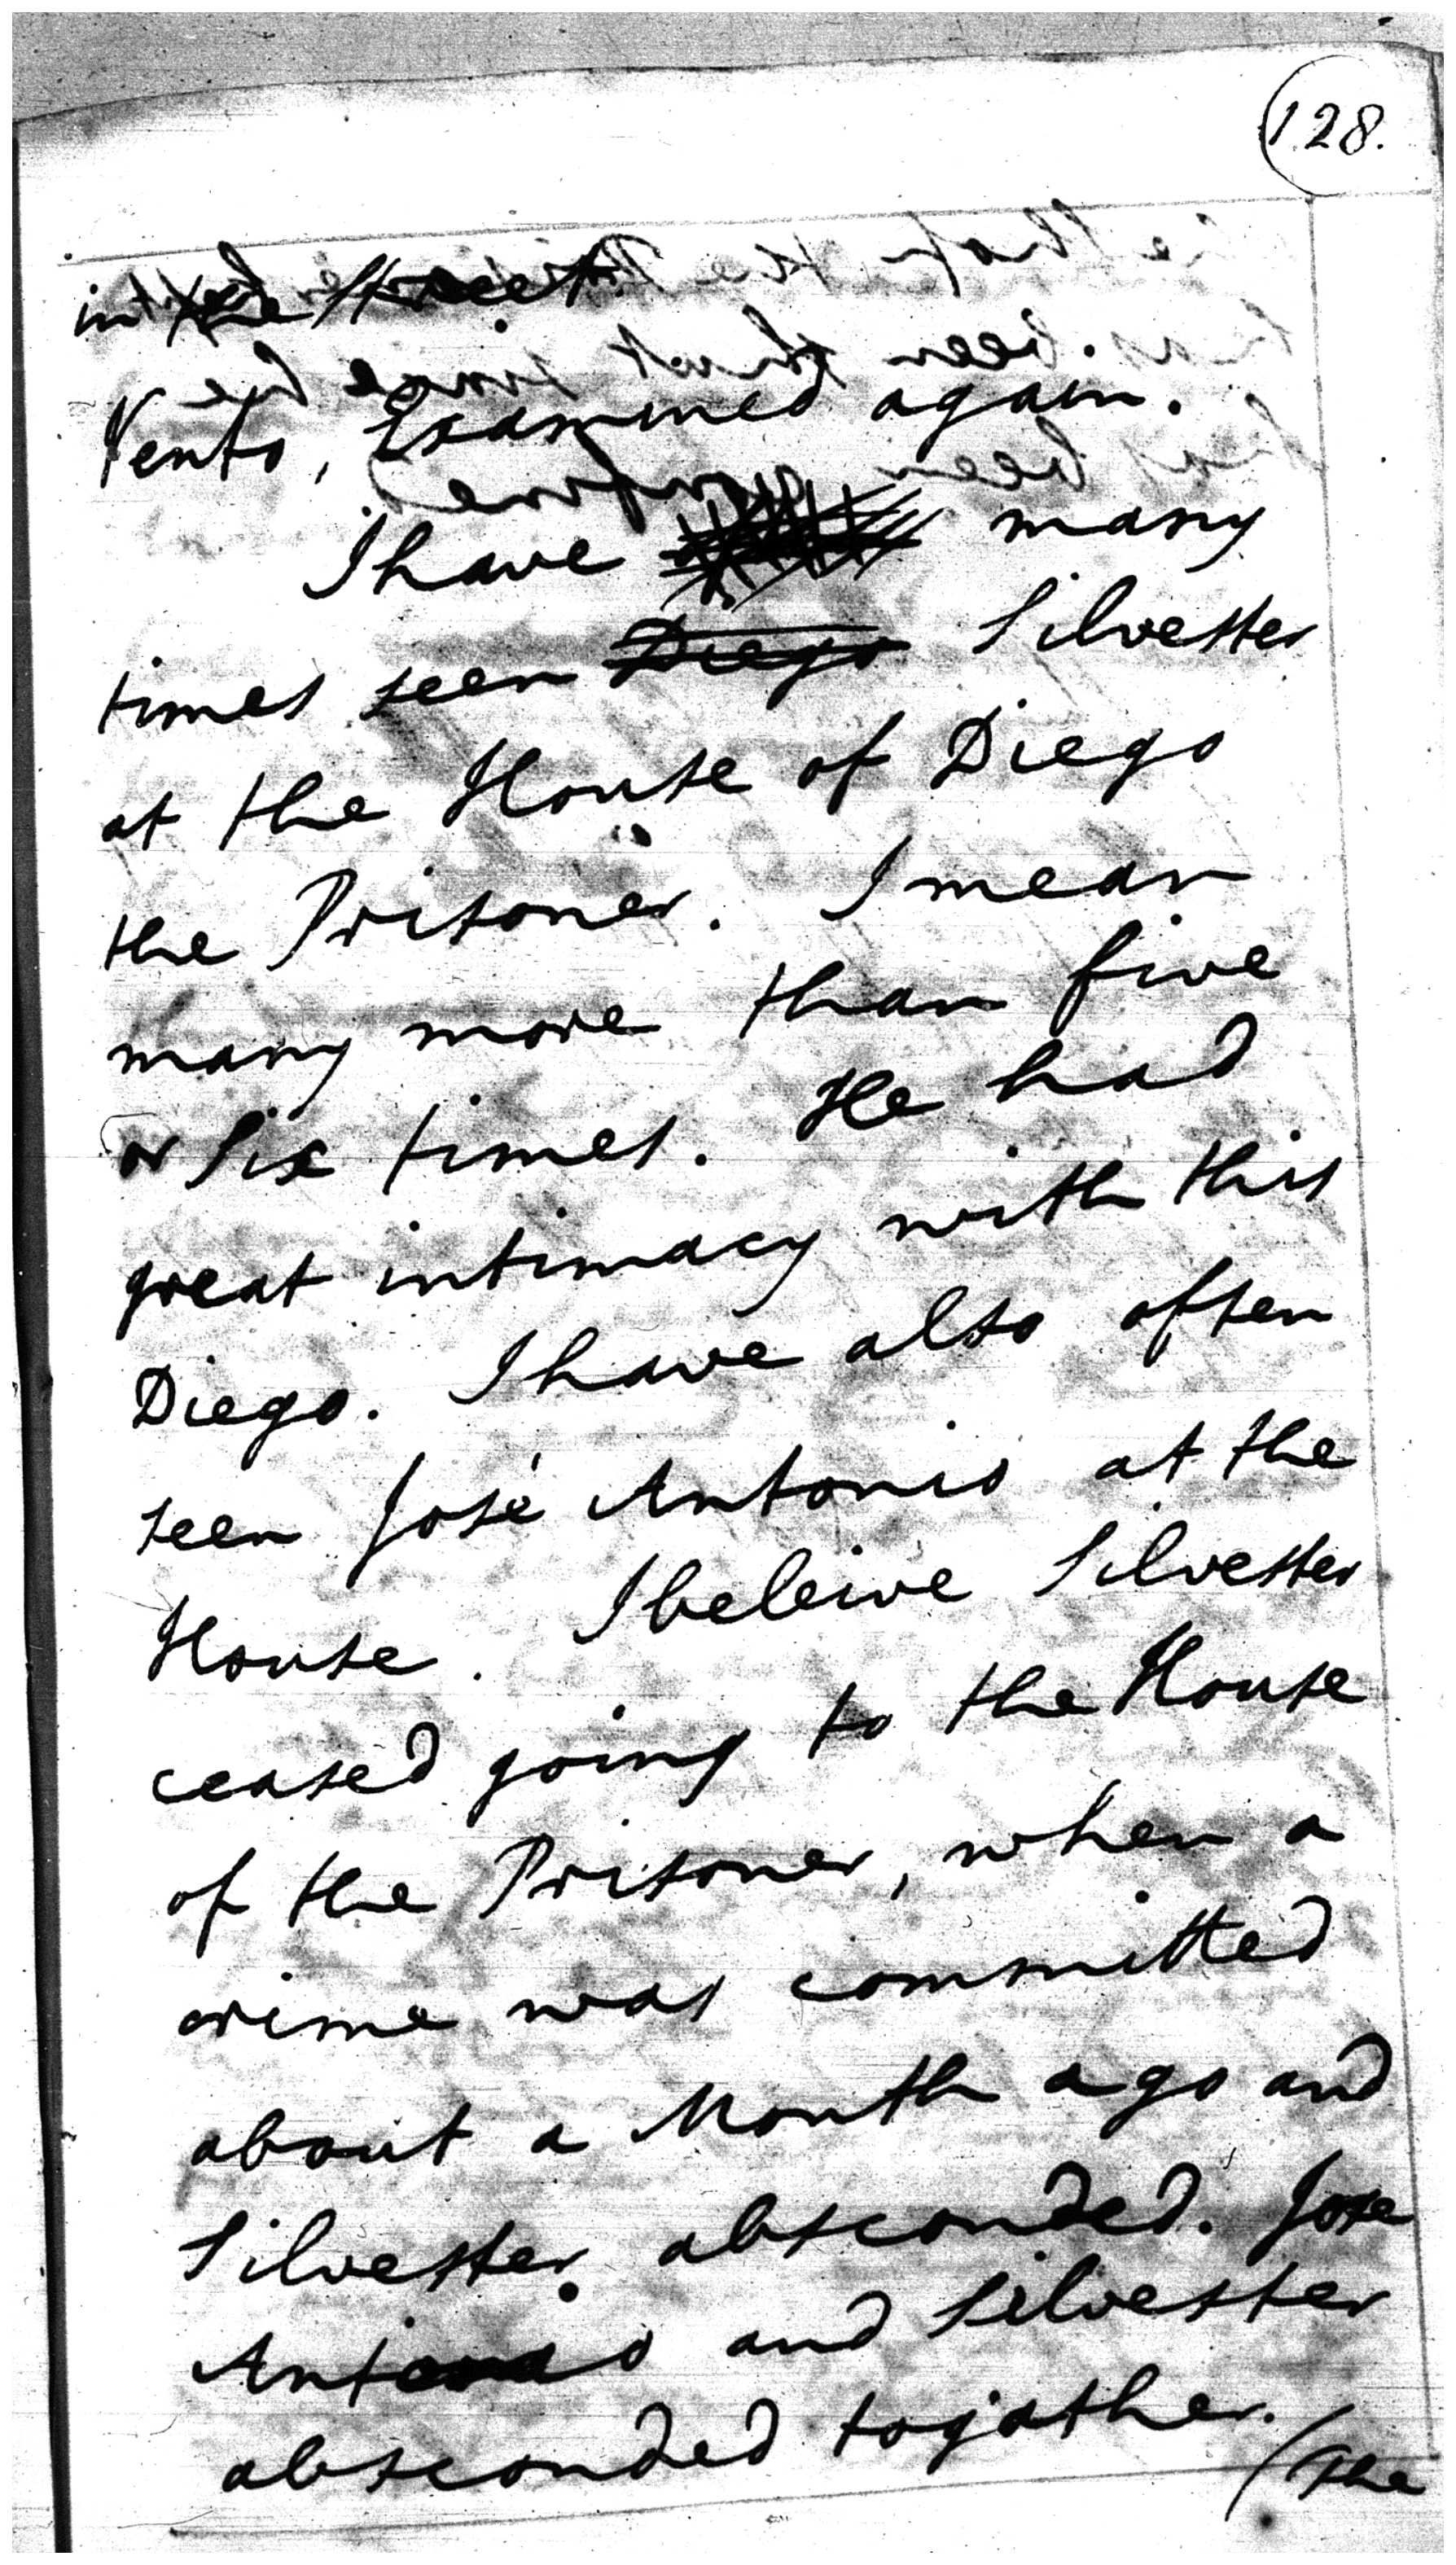 128.
in the Street.
Vento, Examined again.
I have many
times seen Diego Silvester
at the House of Diego
the Prisoner. I mean
many more than five
or Six times. He had
great intimacy with this
Diego. I have also often
seen José Antonio at the
House. I beleive Silvester
ceased going to the House
of the Prisoner, when a
crime was committed
about a Month ago and
Silvester absconded. Jose
Antonio and Silvester
absconded togather.
(The